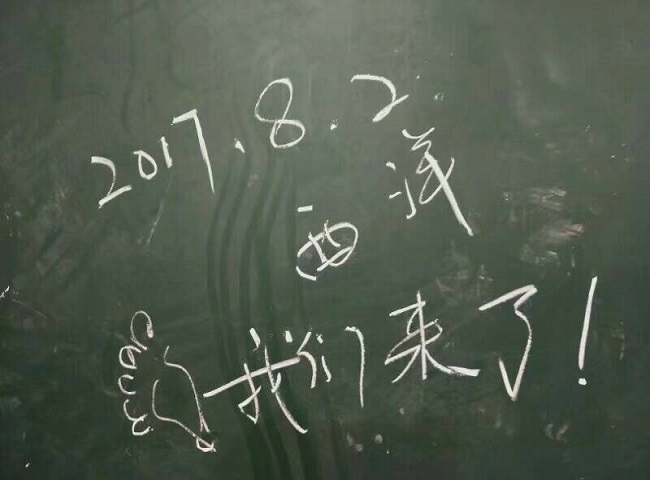 2017.8.2
西洋
我们来了!